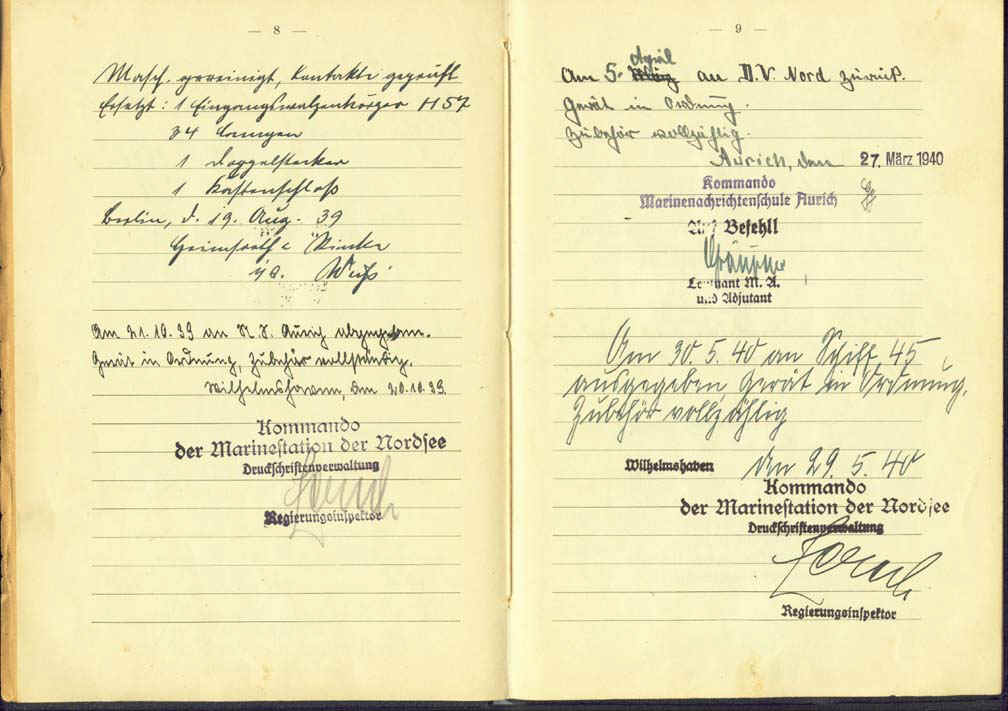 — 8 —
Masch. gereinigt, Kontakte geprüft
Ersetzt: 1 Eingangswalzenkörper H 57
34 Lampen
1 Doppelstecker
1 Kastenschloß
Berlin, d. 19. Aug. 39
Heimsoeth & Rinke
Am 21.10.39 an N. S. Aurich abgegeben.
Gerät in Ordnung, Zubehör vollständig.
Wilhelmshaven, den 20.10.39.
Kommando
der Marinestation der Nordsee
Druckschriftenverwaltung
Regierungsinspektor
— 9 —
April
Am 5. an D.V. Nord zurück.
Gerät in Ordnung.
Zubehör vollzählig.
Aurich, den 27. März 1940
Kommando
Marinenachrichtenschule Aurich
Auf Befehl
Leutnant M. A.
und Adjutant
Am 30.5.40 an Schiff 45
ausgegeben, Gerät in Ordnung,
Zubehör vollzählig
Wilhelmshaven den 29.5.40
Kommando
der Marinestation der Nordsee
Druckschriftenverwaltung
Regierungsinspektor